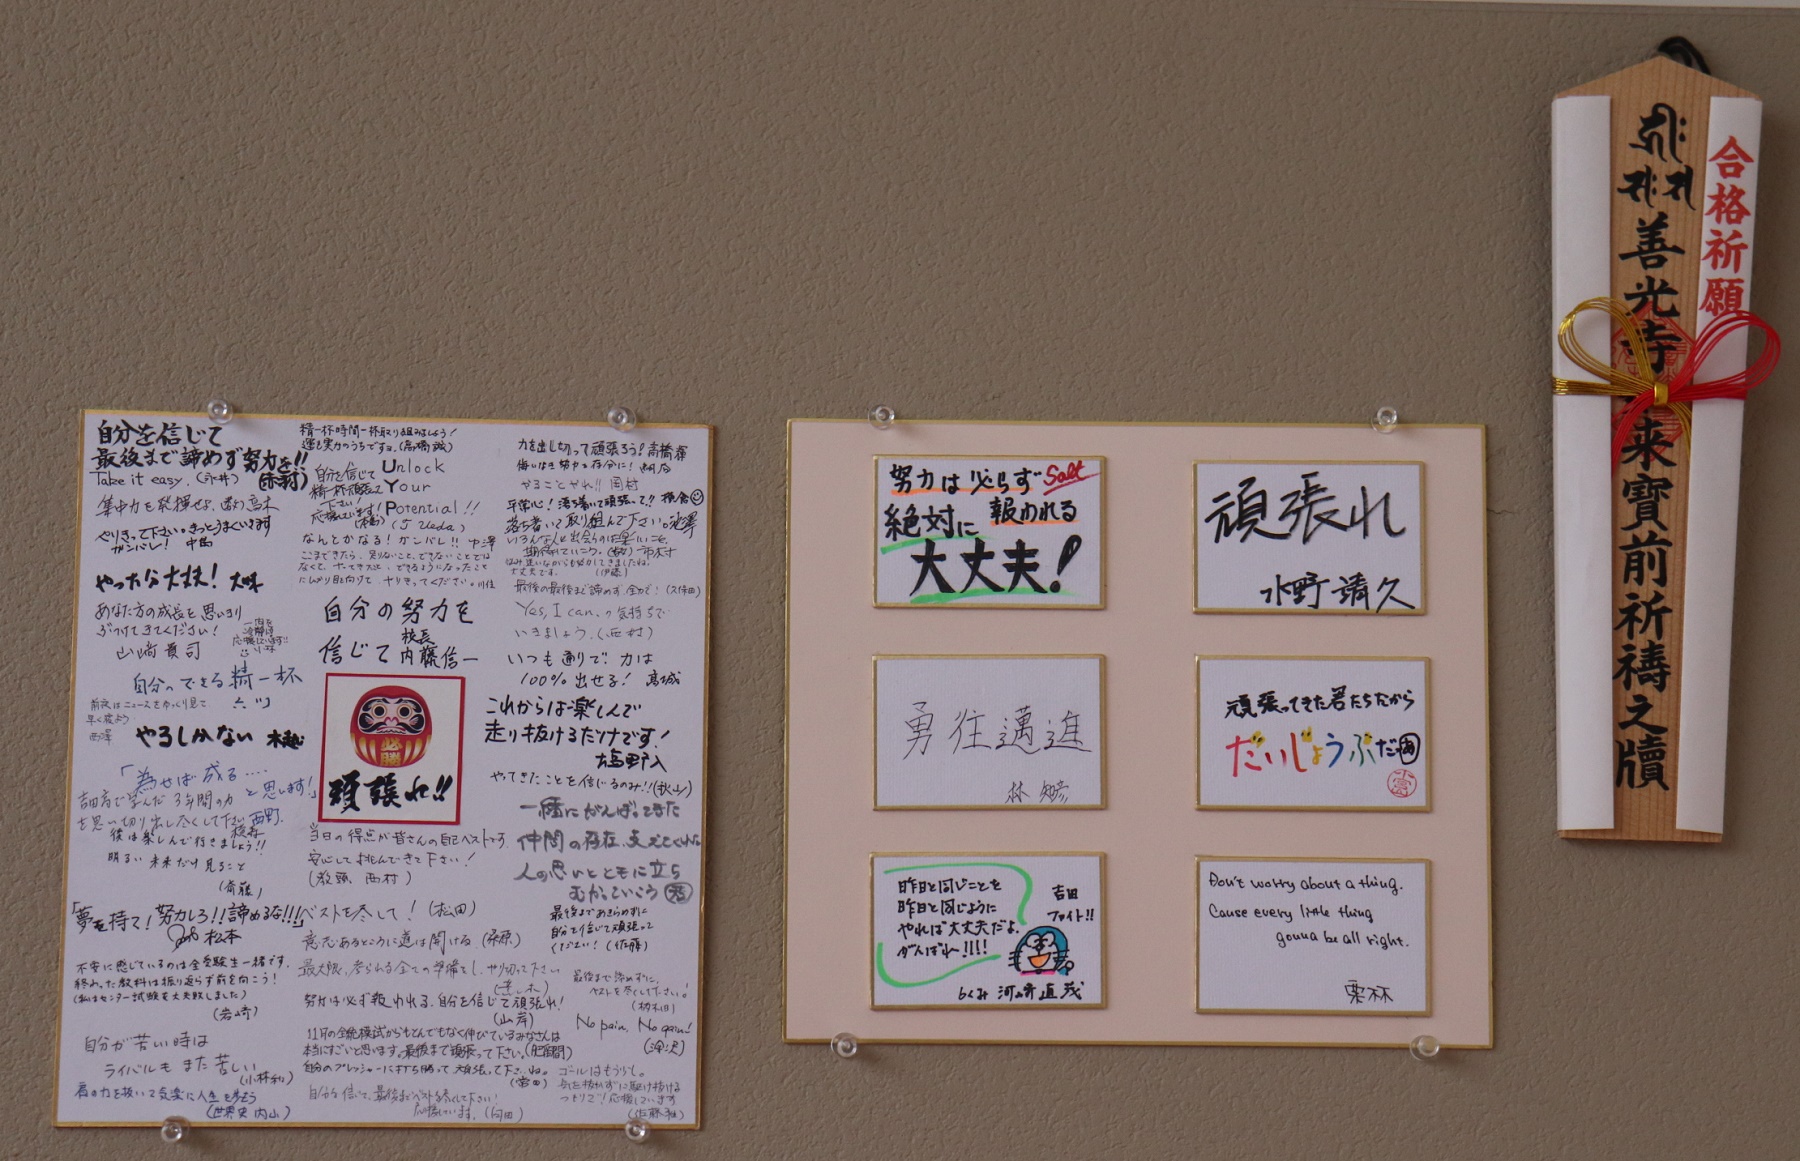 自分を信じて
最後まで諦めず努力を!!
Take it easy. (永井)
(赤村)
やりきって下さい。きっとうまくいきます
ガンバレ! 中島
やったら大丈夫!
あなた方の成長を思いきり
ぶつけてきてください!
山崎貴司
自分のできる精一杯
前夜はニュースをゆっくり見て
早く寝よう
西澤
やるしかない 木越
「為せば成る....
と思います!」
吉田高で学んだ3年間の力
を思い切り出し尽くして下さい 西野.
後は楽しんで行きましょう!!
明るい未来だけ見ること
(斎藤)
「夢を持て! 努力しろ!! 諦めるな!!!」
松本
不安に感じているのは全受験生一緒です。
終わった教科は振り返らず前を向こう!
(私はセンター試験を大失敗しました)
(岩崎)
自分が苦しい時は
ライバルもまた苦しい
(小林利)
肩の力を抜いて気楽に人生を歩もう
(世界史 内山)
精一杯時間一杯取り組みましょう!
運も実力のうちですョ. (高橋誠)
自分を信じて
精一杯頑張って
下さい!
応援しています!
Unlock
Your
Potential!!
(J Ueda)
なんとかなる! ガンバレ!! 中澤
ここまできたら、足りないこと、できないことでは
なくて、やってきたこと、できるようになったこと
に目を向けて、やりきってください。
自分の努力を
信じて 校長 内藤信一
必勝
頑張れ!!
当日の得点が皆さんの自己ベストです.
安心して挑んできて下さい!
(教頭 西村)
ベストを尽して! (松田)
意志あるところに道は開ける. (桑原)
最大限、考えられる全ての準備をし、やり切って下さい
努力は必ず報われる. 自分を信じて頑張れ!
(山岸)
11月の全統模試からもとんでもなく伸びているみなさんは
本当にすごいと思います。最後まで頑張って下さい。(肥留間)
自分のプレッシャーに打ち勝って頑張って下さいね。
(富田)
自分を信じて、最後までベストを尽くして下さい!
応援しています。 (向田)
力を出し切って頑張ろう! 高橋
悔いなき努力を存分に!
やることやれ!! 岡村
平常心! 落ち着いて頑張って!!
落ち着いて取り組んで下さい。
いろんな人と出会うのは楽しいこと。
期待していこう。 市村
大丈夫です。 (伊藤)
最後の最後まで諦めず、全力で! (久保田)
Yes, I can. の気持ちで
いきましょう. (西村)
いつも通りで! 力は
100% 出せる! 高城
これからは楽しんで
走り抜けるだけです!
やってきたことを信じるのみ!! (秋山)
一緒にがんばってきた
仲間の存在、支えてくれた
人の思いとともに立ち
むかっていこう
最後まであきらめずに
自分を信じて頑張って
ください! (佐藤)
最後まで諦めずに、
ベストを尽くして下さい!
No pain, No gain!
(深沢)
ゴールはもう少し。
気を抜かずに駆け抜ける
つもりで! 応援しています
(佐藤雅)
努力は必らず Salt
絶対に 報われる
大丈夫!
頑張れ
水野靖久
勇往邁進
林 知彦
頑張ってきた君たちだから
だいじょうぶだ
昨日と同じことを
昨日と同じように
やれば大丈夫だよ.
がんばれ〜!!!!
吉田
ファイト!!
らくみ 河崎直哉
Don't worry about a thing.
Cause every little thing
gonna be all right.
栗林
合格祈願
善光寺
来寶前祈禱之牘